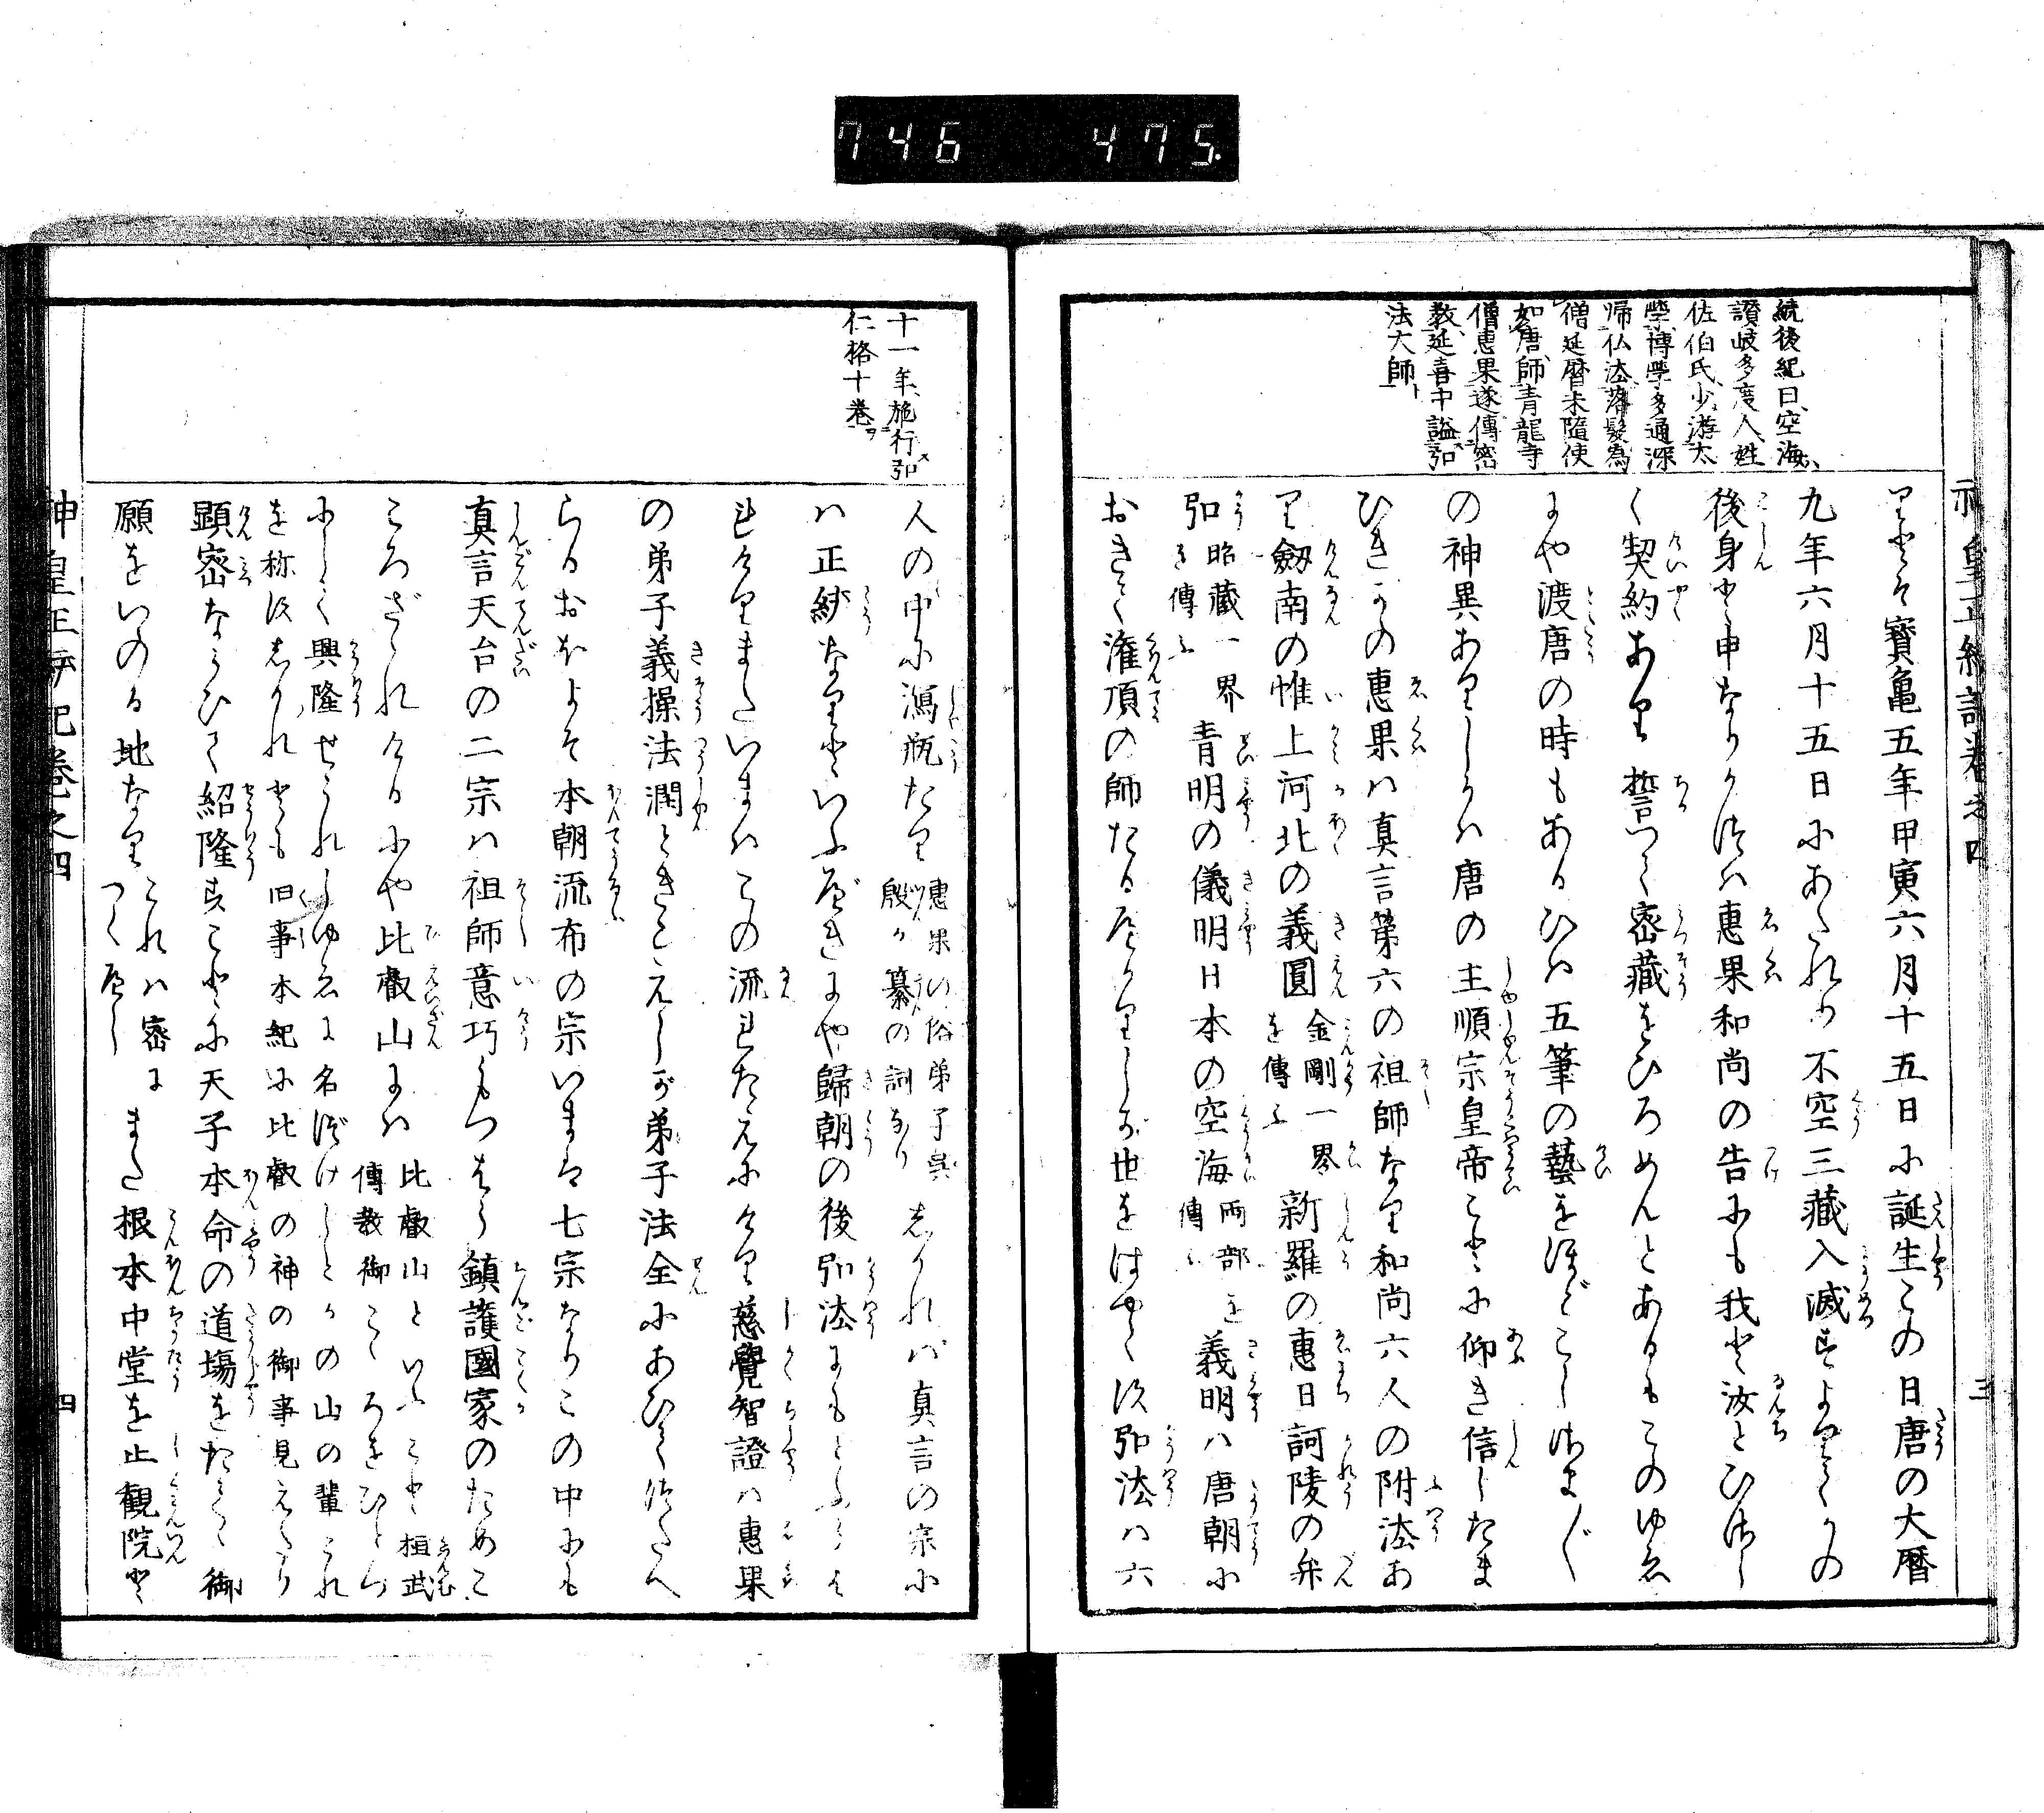 746 475.
神皇正統記卷之四
三
続後紀曰空海
讃岐多度人姓
佐伯氏少游太
學博學多通深
歸仏法落髪為
僧延暦末隨使
如唐師青龍寺
僧惠果遂傳密
教延喜中謚弘
法大師
りとそ寶亀五年甲寅六月十五日に誕生この日唐の大暦
九年六月十五日にあたれり不空三藏入滅すよりてかの
後身と申なりかつは惠果和尚の告にも我と汝とひさし
く契約あり誓つて密藏をひろめんとあるもこのゆゑ
にや渡唐の時もあるひは五筆の藝をほどこしさま〴〵
の神異ありしかは唐の主順宗皇帝ことに仰き信したま
ひきかの惠果は真言第六の祖師なり和尚六人の附法あ
り劔南の惟上河北の義圓金剛一界を傳ふ新羅の惠日訶陵の弁
弘昭藏一界を傳ふ青明の儀明日本の空海両部を傳ふ義明ハ唐朝に
おきて潅頂の師たるへかりしが世をはやくす弘法ハ六
十一年施行弘
仁格十巻
人の中に瀉瓶たり惠果の俗弟子呉殷か纂の詞なりしかれば真言の宗に
ハ正紗なりといふべきにや歸朝の後弘法にもとふらは
の弟子義操法潤ときこえしが弟子法全にあひてつたへ
れけりまたいまはこの流れたえにけり慈覺智證ハ惠果
らるおほよそ本朝流布の宗いまは七宗なりこの中にも
真言天台の二宗ハ祖師意巧もつはら鎮護國家のためこ
ころざされけるにや比叡山には比叡山といふこと桓武傳教御こころをひとつ
にしく興隆せられしゆゑに名づけしとかの山の輩これ
を称すしかれとも旧事本紀に比叡の神の御事見えたり
顕密ならひて紹隆すことに天子本命の道場をたてて御
願をいのる地なりこれハ密につくべしまた根本中堂を止観院と
神皇正統記卷之四
四